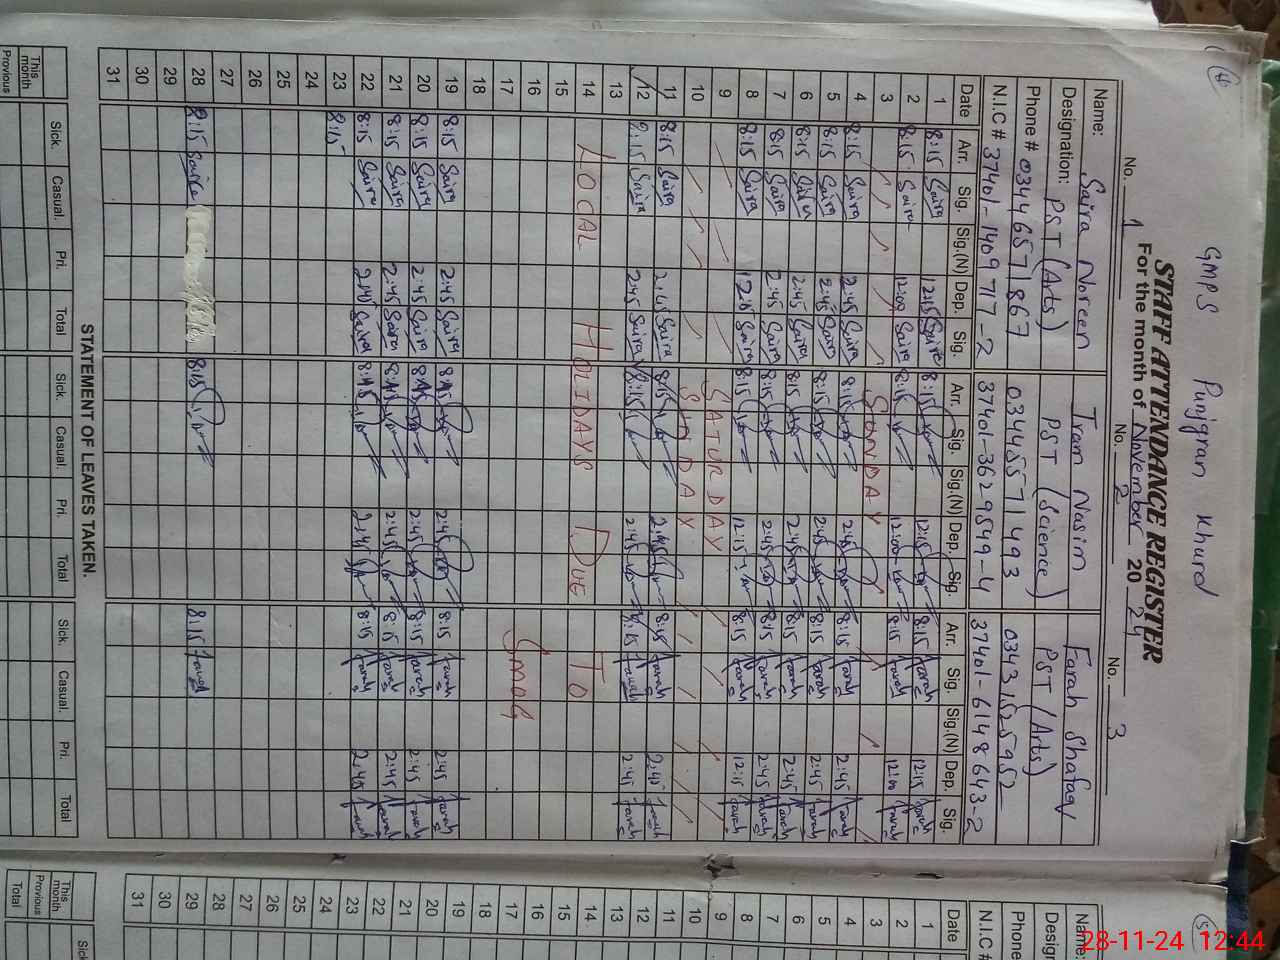 4
GMPS Punjgran Khurd
STAFF ATTENDANCE REGISTER
For the month of November 2024
No. 1 No. 2 No. 3
Name: Saira Noreen Iram Nasim Farah Shafaq
Designation: PST (Arts) PST (Science) PST (Arts)
Phone # 03446571867 03445571493 03431525952
N.I.C # 37401-1409717-2 37401-3629549-4 37401-6148643-2
Date Arr. Sig. Sig.(N) Dep. Sig. Arr. Sig. Sig.(N) Dep. Sig. Arr. Sig. Sig.(N) Dep. Sig.
1 8:15 Saira 12:45 Saira 8:15 12:15 8:15 farah 12:45 farah
2 8:15 Saira 12:00 Saira 8:15 12:00 8:15 farah 12:00 farah
3 SUNDAY
4 8:15 Saira 2:45 Saira 8:15 2:45 8:15 farah 2:45 farah
5 8:15 Saira 2:45 Saira 8:15 2:45 8:15 farah 2:45 farah
6 8:15 Saira 2:45 Saira 8:15 2:45 8:15 farah 2:45 farah
7 8:15 Saira 2:45 Saira 8:15 2:45 8:15 farah 2:45 farah
8 8:15 Saira Saira 8:15 12:15 8:15 farah 12:15 farah
9 SATURDAY
10 SUNDAY
11 8:15 Saira 2:45 Saira 8:15 2:45 8:15 farah 2:45 farah
12 8:15 Saira 2:45 Saira 8:15 2:45 8:15 farah 2:45 farah
13
14 LOCAL HOLIDAYS DUE TO
15
16
17 SMOG
18
19 8:15 Saira 2:45 Saira 8:15 2:45 8:15 farah 2:45 farah
20 8:15 Saira 2:45 Saira 8:15 2:45 8:15 farah 2:45 farah
21 8:15 Saira 2:45 Saira 8:15 2:45 8:15 farah 2:45 farah
22 8:15 Saira Saira 8:15 2:45 8:15 farah 2:45 farah
23 8:15
24
25
26
27
28 8:15 Saira 8:15 8:15 farah
29
30
31
STATEMENT OF LEAVES TAKEN.
Sick. Casual. Pri. Total Sick. Casual. Pri. Total Sick. Casual. Pri. Total
This month
Previous
5
Name:
Design
Phone
N.I.C #
Date
1
2
3
4
5
6
7
8
9
10
11
12
13
14
15
16
17
18
19
20
21
22
23
24
25
26
27
28
29
30
31
Sick
This month
Previous
Total
28-11-24 12:44